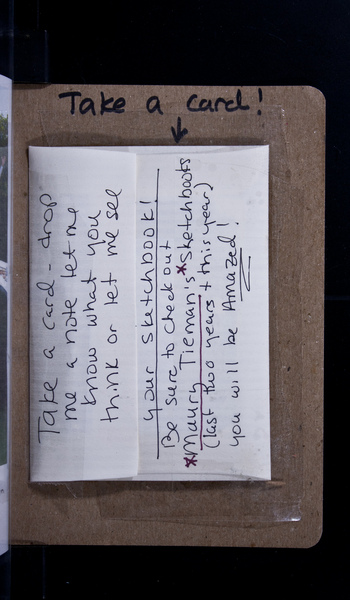 Take a card!
Take a card - drop
me a note let me
know what you
think or let me see
your sketchbook!
Be sure to check out
*Maury Tieman's*sketchbooks
(last two years + this year)
you will be Amazed!